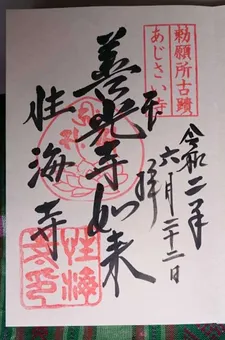 勅願所古蹟
あじさい寺
令和二年
六月二十二日
奉拝
善光寺如来
性海寺